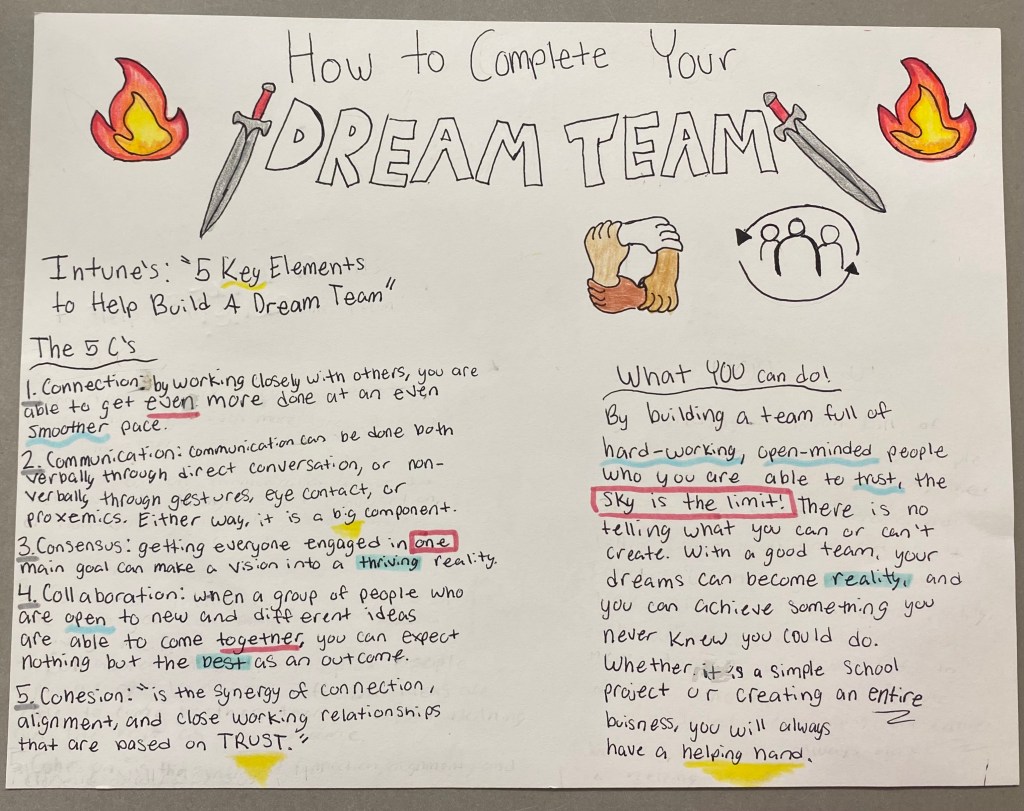 How to Complete Your
DREAM TEAM
Intune's: "5 Key Elements
to Help Build A Dream Team"
The 5 C's
1. Connection: by working closely with others, you are
able to get even more done at an even
smoother pace.
2. Communication: communication can be done both
verbally through direct conversation, or non-
verbally through gestures, eye contact, or
proxemics. Either way, it is a big component.
3. Consensus: getting everyone engaged in one
main goal can make a vision into a thriving reality.
4. Collaboration: when a group of people who
are open to new and different ideas
are able to come together, you can expect
nothing but the best as an outcome.
5. Cohesion: "is the synergy of connection,
alignment, and close working relationships
that are based on TRUST."
What YOU can do!
By building a team full of
hard-working, open-minded people
who you are able to trust, the
sky is the limit! There is no
telling what you can or can't
create. With a good team, your
dreams can become reality, and
you can achieve something you
never knew you could do.
Whether it is a simple school
project or creating an entire
buisness, you will always
have a helping hand.